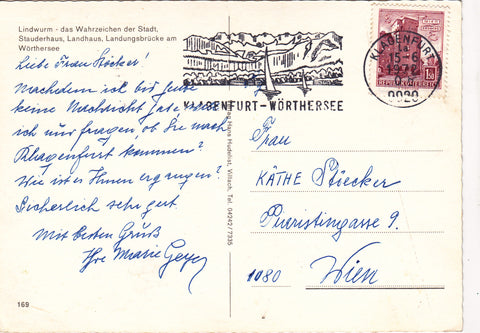 Lindwurm - das Wahrzeichen der Stadt,
Stauderhaus, Landhaus, Landungsbrücke am
Wörthersee
Liebe Frau Stöcker!
Nachdem ich bis heute
keine Nachricht
ich nur fragen, ob Sie nach
Klagenfurt kommen?
Wie ist es Ihnen ergangen?
Sicherlich sehr gut
Mit besten Gruß
Ihre Marie Geyer
169
Hans Hudelist, Villach, Tel. 04242/7335
KLAGENFURT-WÖRTHERSEE
KLAGENFURT
1a
15-6
9020
REPUBLIK ÖSTERREICH
Frau
KÄTHE Stöcker
9.
1080 Wien